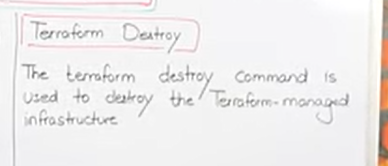 Terraform Destroy
The terraform destroy command is
used to destroy the Terraform-managed
infrastructure